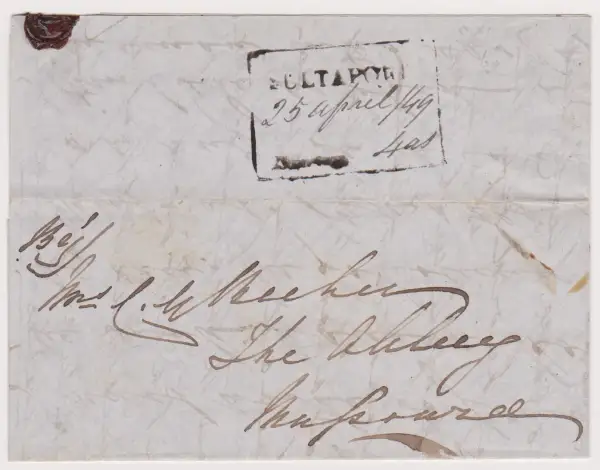 SULTAPOR
25 april/49
4as
Mrs C. G. Becher
The Abbey
Mussoorie